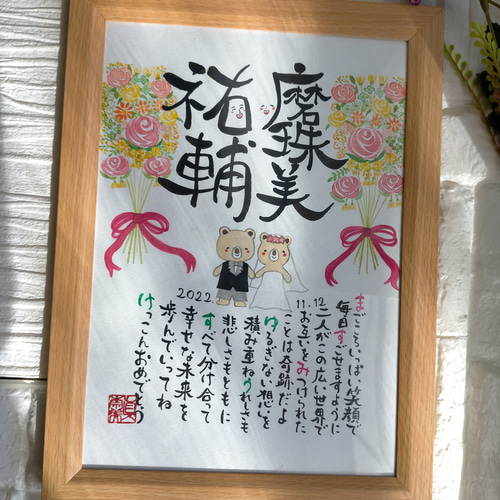 磨珠美
祐輔
まごころいっぱい笑顔で
毎日すごせますように
12
二人がこの広い世界で
11.
お互いをみつけられた
ことは奇跡だよ
ゆるぎない想い
積み重ねうれしさも
悲しさもともに
2022.
すべて分け合って
幸せな未来を
歩んでいってね
けっこんおめでとう